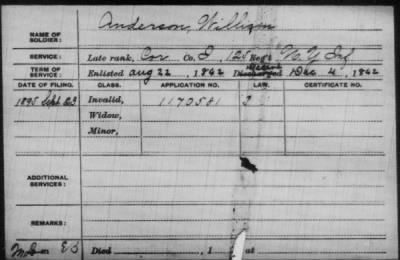 Anderson, William
NAME OF SOLDIER:
SERVICE: Late rank, Cor Co. I, 125 Reg't N.Y. Inf
TERM OF SERVICE: Enlisted Aug 22, 1862 Discharged Dec 4, 1862
DATE OF FILING. CLASS. APPLICATION NO. LAW. CERTIFICATE NO.
1895 Sept 23 Invalid, 1170581
Widow,
Minor,
ADDITIONAL SERVICES:
REMARKS:
Died , 1 at